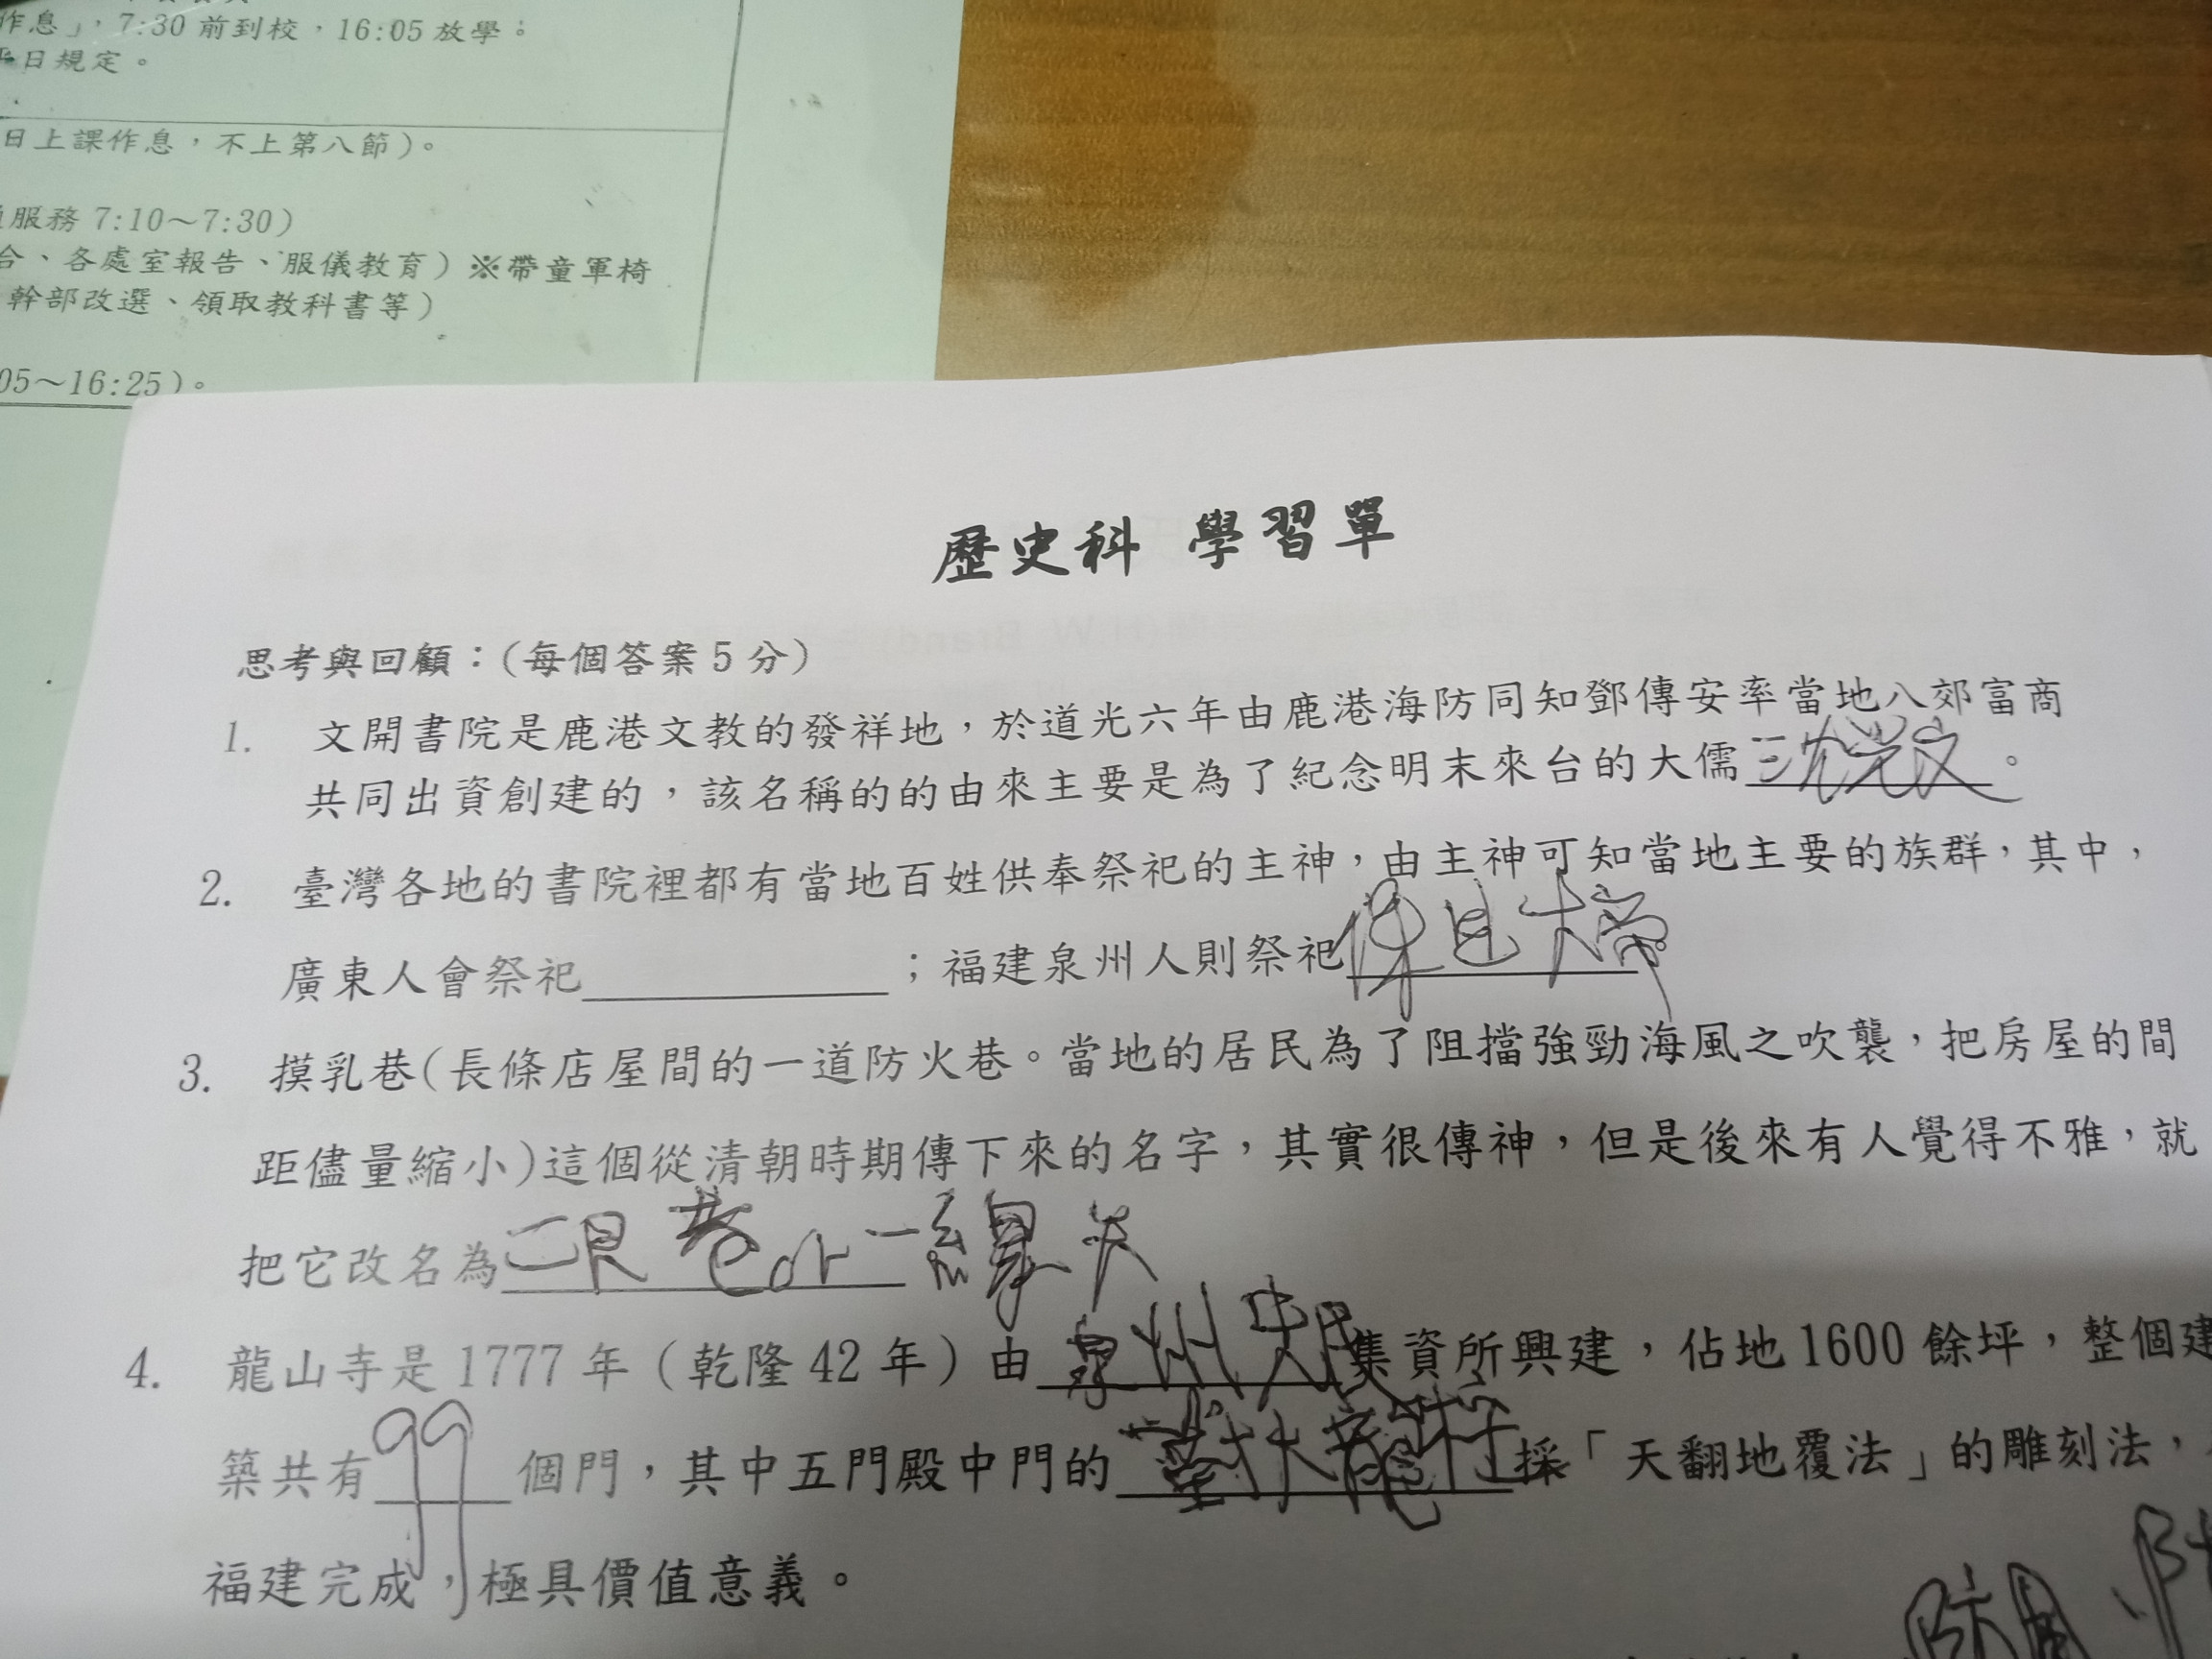 作息」,7:30前到校,16:05放學。
日規定。
日上課作息,不上第八節)。
服務 7:10~7:30)
合、各處室報告、服儀教育)※帶童軍椅
幹部改選、領取教科書等)
05~16:25)。
歷史科 學習單
思考與回顧:(每個答案5分)
1. 文開書院是鹿港文教的發祥地,於道光六年由鹿港海防同知鄧傳安率當地八郊富商
共同出資創建的,該名稱的的由來主要是為了紀念明末來台的大儒沈光文。
2. 臺灣各地的書院裡都有當地百姓供奉祭祀的主神,由主神可知當地主要的族群,其中,
廣東人會祭祀 ;福建泉州人則祭祀保 大帝
3. 摸乳巷(長條店屋間的一道防火巷。當地的居民為了阻擋強勁海風之吹襲,把房屋的間
距儘量縮小)這個從清朝時期傳下來的名字,其實很傳神,但是後來有人覺得不雅,就
把它改名為 巷or一線天
4. 龍山寺是1777年(乾隆42年)由泉州 集資所興建,佔地1600餘坪,整個建
築共有99個門,其中五門殿中門的 龍 採「天翻地覆法」的雕刻法,
福建完成,極具價值意義。